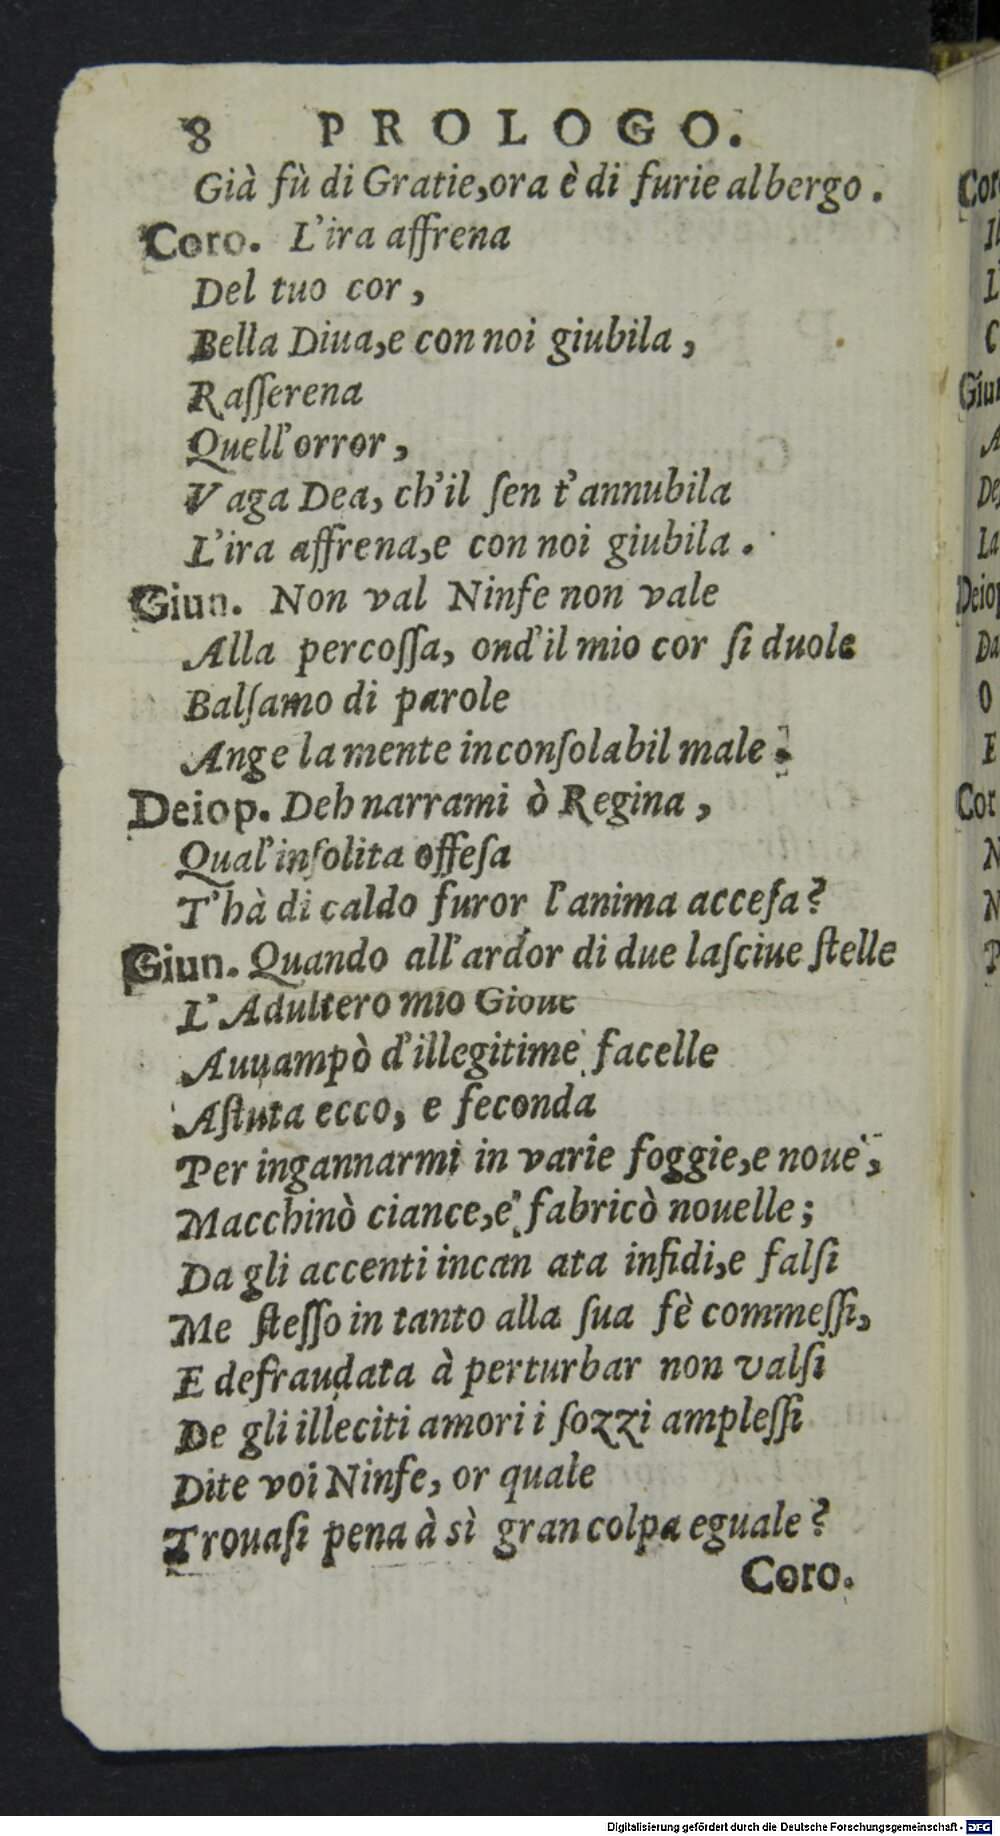 8 PROLOGO.
Già fù di Gratie,ora è di furie albergo.
Coro. L'ira affrena
Del tuo cor,
Bella Diua,e con noi giubila,
Raſſerena
Quell'orror,
Vaga Dea, ch'il ſen t'annubila
L'ira affrena,e con noi giubila.
Giun. Non val Ninfe non vale
Alla percoſſa, ond'il mio cor ſi duole
Balſamo di parole
Ange la mente inconſolabil male.
Deiop. Deh narrami ò Regina,
Qual'inſolita offeſa
T'hà di caldo furor l'anima acceſa?
Giun. Quando all'ardor di due laſciue ſtelle
L'Adultero mio Gioue
Auuampò d'illegitime facelle
Aſtuta ecco, e feconda
Per ingannarmi in varie foggie,e noue,
Macchinò ciance,e fabricò nouelle;
Da gli accenti incan ata infidi,e falſi
Me ſteſſo in tanto alla ſua fè commeſſi,
E defraudata à perturbar non valſi
De gli illeciti amori i ſozzi ampleſſi
Dite voi Ninfe, or quale
Trouaſi pena à sì gran colpa eguale?
Coro.
Cor
Il
L'
C
Giun
A
De
La
Deiop
Da
O
E
Cor
N
N
P
Digitalisierung gefördert durch die Deutsche Forschungsgemeinschaft - DFG